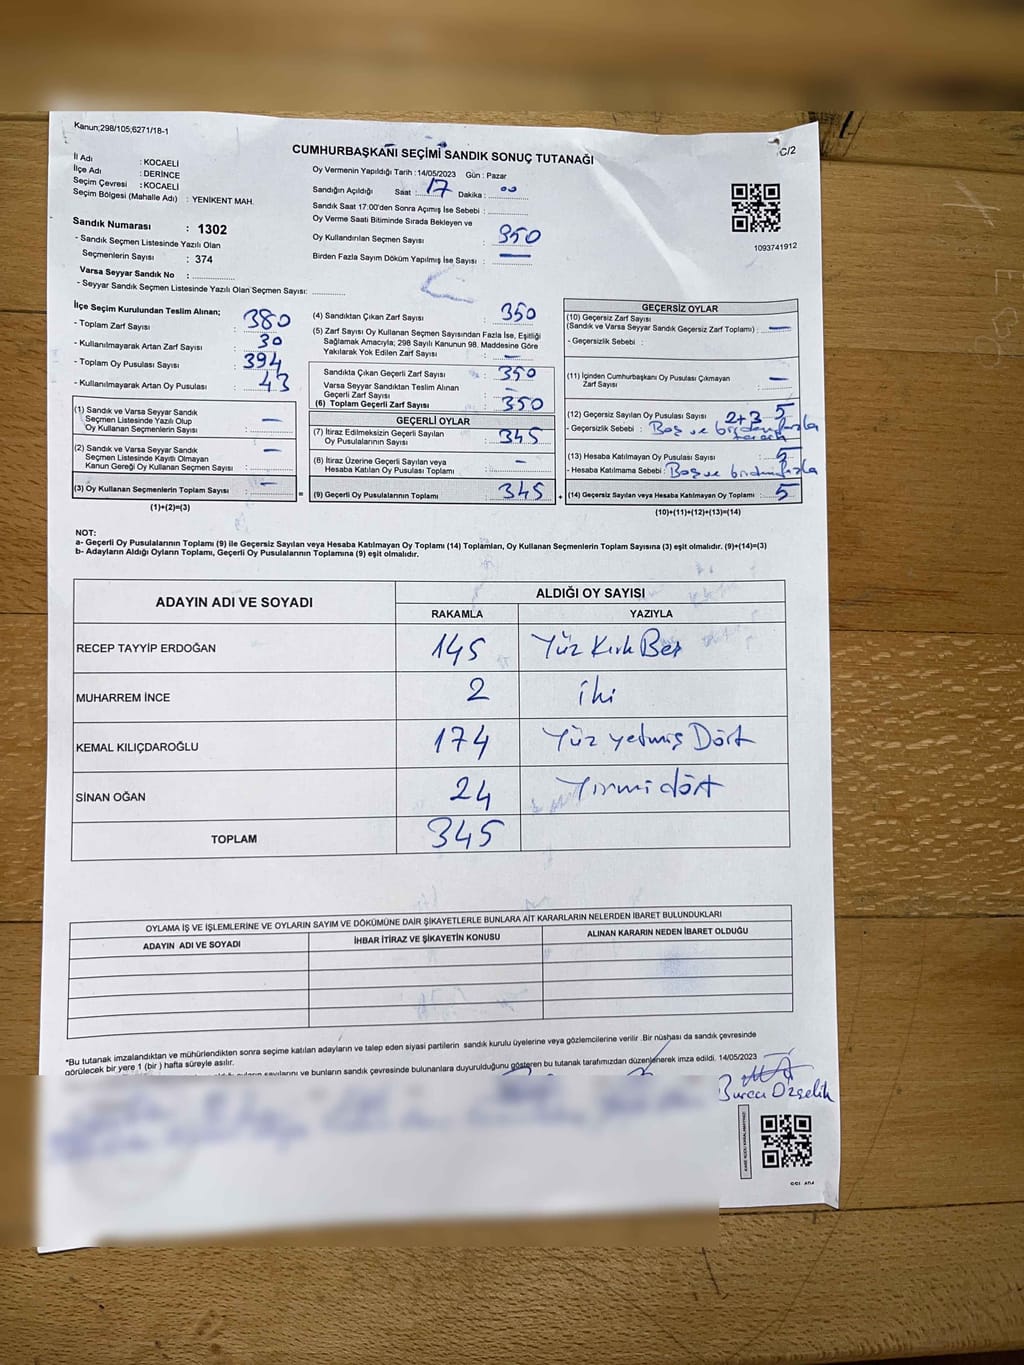 Kanun;298/105,6271/18-1
C/2
CUMHURBAŞKANI SEÇİMİ SANDIK SONUÇ TUTANAĞI
İl Adı : KOCAELİ
İlçe Adı : DERİNCE
Seçim Çevresi : KOCAELİ
Seçim Bölgesi (Mahalle Adı) : YENİKENT MAH.
Oy Vermenin Yapıldığı Tarih : 14/05/2023 Gün : Pazar
Sandığın Açıldığı Saat : 17 Dakika : 00
Sandık Saat 17:00'den Sonra Açmış İse Sebebi :
Oy Verme Saati Bitiminde Sırada Bekleyen ve
Oy Kullandırılan Seçmen Sayısı : 350
Birden Fazla Sayım Döküm Yapılmış İse Sayısı : —
1093741912
Sandık Numarası : 1302
- Sandık Seçmen Listesinde Yazılı Olan
Seçmenlerin Sayısı : 374
Varsa Seyyar Sandık No :
- Seyyar Sandık Seçmen Listesinde Yazılı Olan Seçmen Sayısı:
İlçe Seçim Kurulundan Teslim Alınan;
- Toplam Zarf Sayısı : 380
- Kullanılmayarak Artan Zarf Sayısı : 30
- Toplam Oy Pusulası Sayısı : 394
- Kullanılmayarak Artan Oy Pusulası : 43
(1) Sandık ve Varsa Seyyar Sandık
Seçmen Listesinde Yazılı Olup
Oy Kullanan Seçmenlerin Sayısı : —
(2) Sandık ve Varsa Seyyar Sandık
Seçmen Listesinde Kayıtlı Olmayan
Kanun Gereği Oy Kullanan Seçmen Sayısı : —
(3) Oy Kullanan Seçmenlerin Toplam Sayısı : —
(1)+(2)=(3)
(4) Sandıktan Çıkan Zarf Sayısı : 350
(5) Zarf Sayısı Oy Kullanan Seçmen Sayısından Fazla İse, Eşitliği
Sağlamak Amacıyla; 298 Sayılı Kanunun 98. Maddesine Göre
Yakılarak Yok Edilen Zarf Sayısı : —
Sandıkta Çıkan Geçerli Zarf Sayısı : 350
Varsa Seyyar Sandıktan Teslim Alınan
Geçerli Zarf Sayısı : —
(6) Toplam Geçerli Zarf Sayısı : 350
GEÇERLİ OYLAR
(7) İtiraz Edilmeksizin Geçerli Sayılan
Oy Pusulalarının Sayısı : 345
(8) İtiraz Üzerine Geçerli Sayılan veya
Hesaba Katılan Oy Pusulası Toplamı : —
(9) Geçerli Oy Pusulalarının Toplamı : 345
GEÇERSİZ OYLAR
(10) Geçersiz Zarf Sayısı
(Sandık ve Varsa Seyyar Sandık Geçersiz Zarf Toplamı) : —
- Geçersizlik Sebebi :
(11) İçinden Cumhurbaşkanı Oy Pusulası Çıkmayan
Zarf Sayısı : —
(12) Geçersiz Sayılan Oy Pusulası Sayısı : 2+3 5
- Geçersizlik Sebebi : Boş ve birden fazla
(13) Hesaba Katılmayan Oy Pusulası Sayısı : 5
- Hesaba Katılmama Sebebi : Boş ve birden fazla
(14) Geçersiz Sayılan veya Hesaba Katılmayan Oy Toplamı : 5
(10)+(11)+(12)+(13)=(14)
NOT:
a- Geçerli Oy Pusulasının Toplamı (9) ile Geçersiz Sayılan veya Hesaba Katılmayan Oy Toplamı (14) Toplamları, Oy Kullanan Seçmenlerin Toplam Sayısına (3) eşit olmalıdır. (9)+(14)=(3)
b- Adayların Aldığı Oyların Toplamı, Geçerli Oy Pusulalarının Toplamına (9) eşit olmalıdır.
ADAYIN ADI VE SOYADI ALDIĞI OY SAYISI
RAKAMLA YAZIYLA
RECEP TAYYİP ERDOĞAN 145 Yüz Kırk Beş
MUHARREM İNCE 2 iki
KEMAL KILIÇDAROĞLU 174 Yüz yetmiş Dört
SİNAN OĞAN 24 Yirmi dört
TOPLAM 345
OYLAMA İŞ VE İŞLEMLERİNE VE OYLARIN SAYIM VE DÖKÜMÜNE DAİR ŞİKAYETLERLE BUNLARA AİT KARARLARIN NELERDEN İBARET BULUNDUKLARI
ADAYIN ADI VE SOYADI İHBAR İTİRAZ VE ŞİKAYETİN KONUSU ALINAN KARARIN NEDEN İBARET OLDUĞU
*Bu tutanak imzalandıktan ve mühürlendikten sonra seçime katılan adayların ve talep eden siyasi partilerin sandık kurulu üyelerine veya gözlemcilerine verilir .Bir nüshası da sandık çevresinde
görülecek bir yere 1 (bir ) hafta süreyle asılır.
sayılarını ve bunların sandık çevresinde bulunanlara duyurulduğunu gösteren bu tutanak tarafımızdan düzenlenerek imza edildi. 14/05/2023
Burcu Özçelik